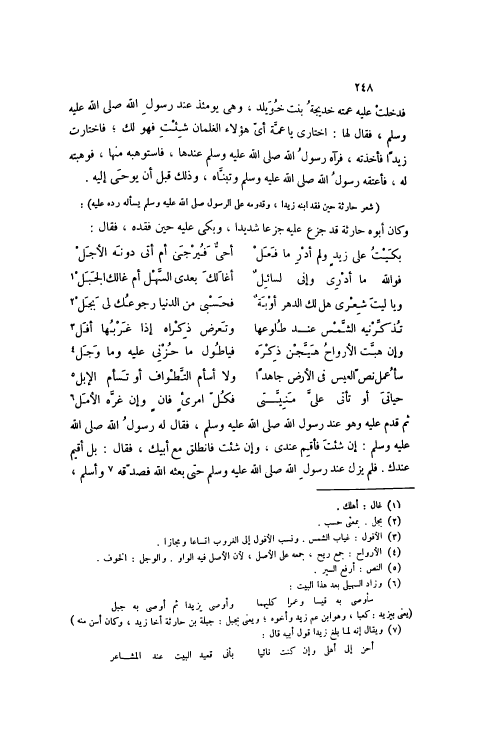 ٢٤٨
فدخلتْ عليه عمته خديجةُ بنت خُوَيلد ، وهى يومئذ عند رسول ِ الله صلى الله عليه
وسلم ، فقال لها : اختارى يا عمَّة أىّ هؤلاء الغلمان شِئْتِ فهو لك ؛ فاختارت
زيدًا فأخذته ، فرآه رسولُ الله صلى الله عليه وسلم عندها ، فاستوهبه منها ، فوهبته
له ، فأعتقه رسولُ الله صلى الله عليه وسلم وتبنَّاه ، وذلك قبل أن يوحَى إليه .
( شعر حارثة حين فقد ابنه زيدا ، وقدومه على الرسول صلى الله عليه وسلم يسأله رده عليه ) :
وكان أبوه حارثة قد جزع عليه جزعا شديدا ، وبكى عليه حين فقده ، فقال :
بكَيْتُ على زيدٍ ولم أدْرِ ما فَعَلْ أحىٌّ فَيُرْجَىَ أم أتى دونَه الأجَلْ
فوالله ما أدْرِى وإنى لسائِلٌ أغالَكَ بعدى السَّهْل أم غالك الجَبَلْ١
ويا ليتَ شِعْرى هل لك الدهر أوْبَةٌ فحَسْبى من الدنيا رجوعُك لى بَجَلْ٢
تُذكِّرْنيه الشَّمْس عنــد طُلوعها وتَعرض ذكْراه إذا غَرْبُها أفَلْ٣
وإن هبَّت الأرواح هَيَّجْنَ ذكْرَه فيا طُول ما حُزْنى عليه وما وَجَلْ٤
سأُعمل نصّ العِيس فى الأرض جاهدًا ولا أسأم التَّطْواف أو تَسأم الإبلْ٥
حياتى أو تأتى علىَّ مَنِيَّتى فكلّ امرئٍ فانٍ وإن غرَّه الأمَلْ٦
ثم قدم عليه وهو عند رسول الله صلى الله عليه وسلم ، فقال له رسولُ الله صلى الله
عليه وسلم : إن شئتَ فأقِم عندى ، وإن شئت فانطلق مع أبيك ، فقال : بل أقيم
عندك . فلم يزل عند رسولِ الله صلى الله عليه وسلم حتى بعثه الله فصدّقه ٧ وأسلم ،
(١) غال : أهلك .
(٢) بجل . بمعنى حسب .
(٣) الأفول : غياب الشمس . ونسب الأفول إلى الغروب اتساعا ومجازا .
(٤) الأرواح : جمع ريح ، جمعه على الأصل ، لأن الأصل فيه الواو . والوجل : الخوف .
(٥) النص : أرفع السير .
(٦) وزاد السهيلى بعد هذا البيت :
سأوصى به قيسا وعمرا كليهما وأوصى يزيدا ثم أوصى به جبل
( يعنى بيزيد : كعبا ، وهو ابن عم زيد وأخوه ؛ ويعنى بجبل : جبلة بن حارثة أخا زيد ، وكان أسن منه )
(٧) ويقال إنه لما بلغ زيدا قول أبيه قال :
أحن إلى أهلى وإن كنت نائيا بأنى قعيد البيت عند المشاعر